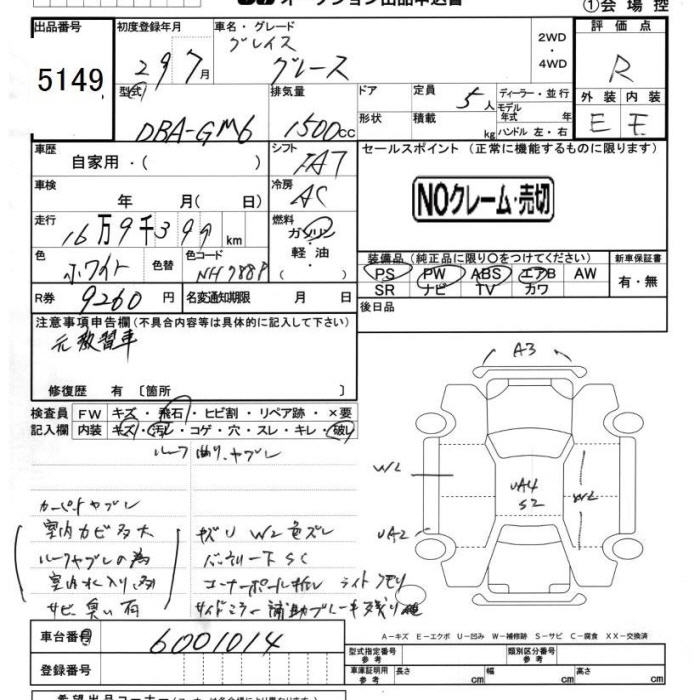 オークション出品申込書
①会場控
出品番号 初度登録年月 車名・グレード 2WD ・ 4WD 評価点
5149 29年7月 グレイス グレース R
型式 排気量 ドア 定員 5人 ディーラー・並行 外装 内装
DBA-GM6 1500cc 形状 積載 kg モデル年式 年 ハンドル 左・右 E E
車歴 自家用・( ) シフト FAT セールスポイント(正常に機能するものに限ります)
車検 年 月( 日) 冷房 AC NOクレーム・売切
走行 16万9千399km 燃料 ガソリン・軽油・( )
色 ホワイト 色替 色コード NH788P
装備品(純正品に限り○をつけてください) 新車保証書
PS PW ABS エアB AW 有・無
SR ナビ TV カワ
R券 9260円 名変通知期限 月 日 後日品
注意事項申告欄(不具合内容等は具体的に記入して下さい)
元教習車
修復歴 有 〔箇所
検査員 FW キズ・飛石・ヒビ割・リペア跡・×要
記入欄 内装 キズ・汚レ・コゲ・穴・スレ・キレ・破レ
ルーフ曲り、ヤブレ
カーペットヤブレ
室内カビ多大
ルーフヤブレの為
室内水入り
サビ臭い有
キズU W2色ズレ
SC
コーナーポール折レ ライトクモリ
サイドミラー 補助ブレーキ残り
A3
W2
UA4
S2
W2
UA2
車台番号 6001014
登録番号
A−キズ E−エクボ U−凹み W−補修跡 S−サビ C−腐食 XX−交換済
型式指定番号 参考 類別区分番号 参考
車庫証明用 参考 長さ cm 幅 cm 高さ cm
希望出品コーナー